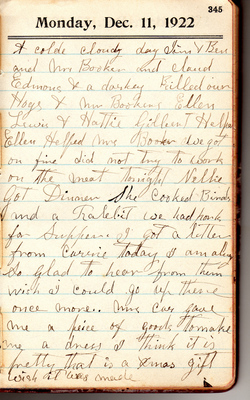 345
Monday, Dec. 11, 1922
A colde cloudy day Jim & Ben
and Mr Booker and Claud
Edmons & a darkey Killed our
Hogs & Mr Bookers Ellen
Lewis & Hattie Gilbert Helped
Ellen Helped Mrs Booker we got
on fine did not try to work
on the meat tonight Nellie
Got Dinner She Cooked Birds
and a Rabbit we had pork
for Supper I got a letter
from Carrie today I am always
So Glad to hear from them
wish I could go up there
once more. Mrs gave
me a peice of goods to make
me a dress I think it is
pretty that is a Xmas gift
wish it was made